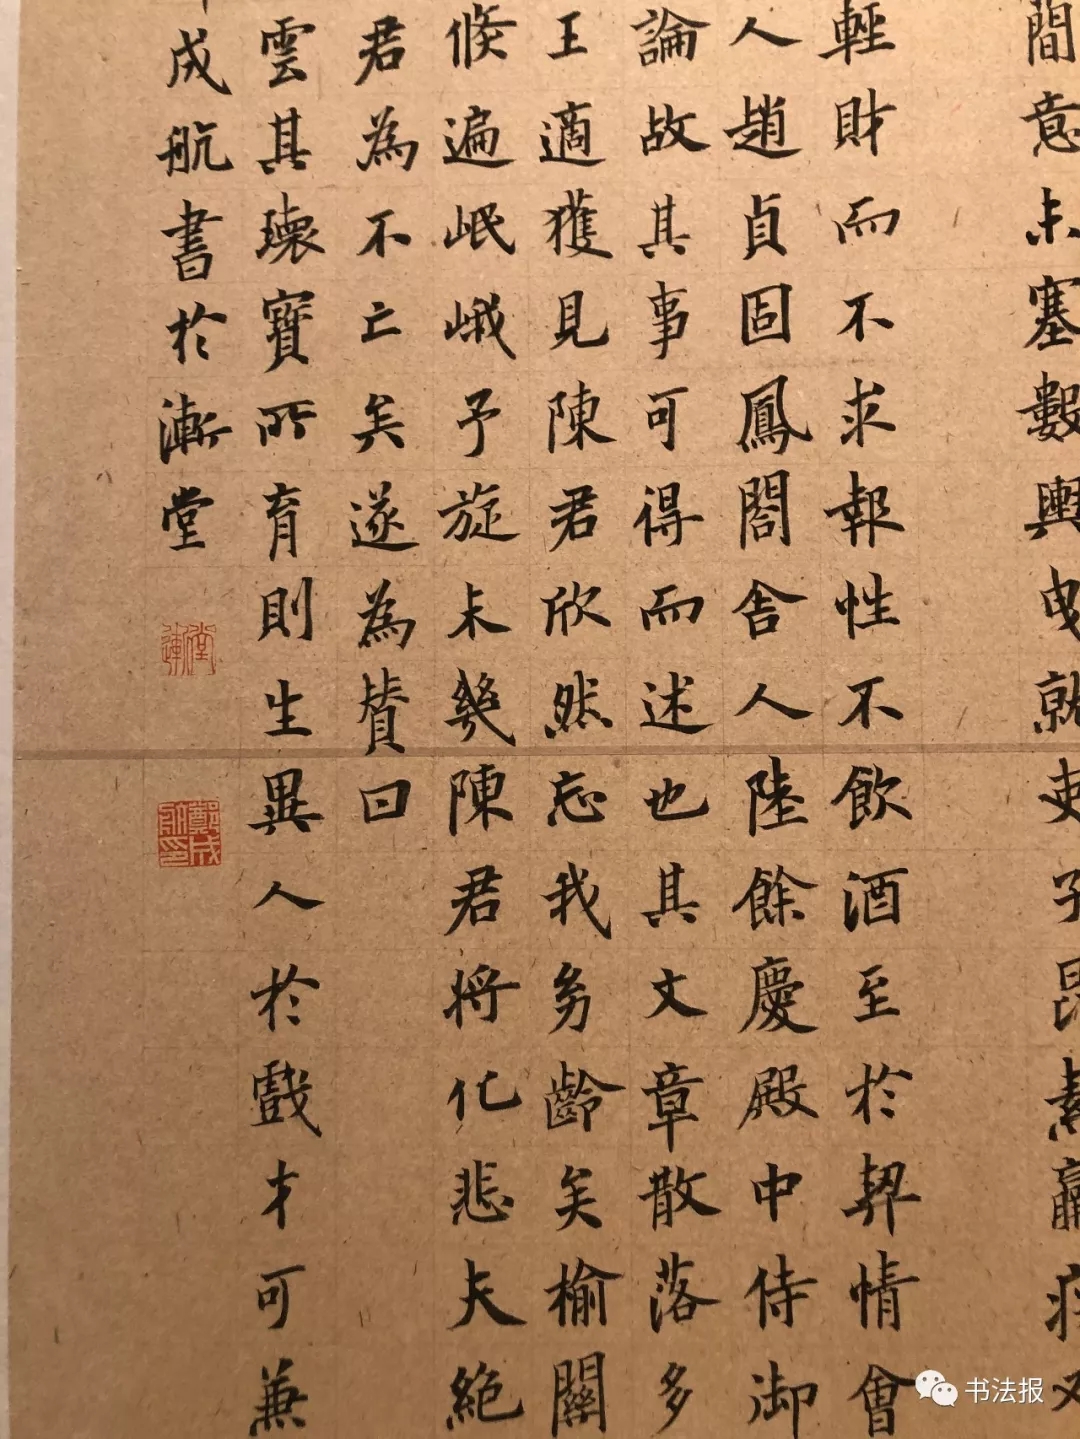 間意未塞數輿曳就吏子昆素羸疾又
輕財而不求報性不飲酒至於契情會
人趙貞固鳳閣舍人陸餘慶殿中侍御
論故其事可得而述也其文章散落多
王適獲見陳君欣然忘我幼齡矣榆關
倏遍岷峨予旋未幾陳君將化悲夫絕
君為不亡矣遂為贊曰
雲其瓌寶所育則生異人於戲才可兼
成航書於漸堂
鄭成航印
书法报